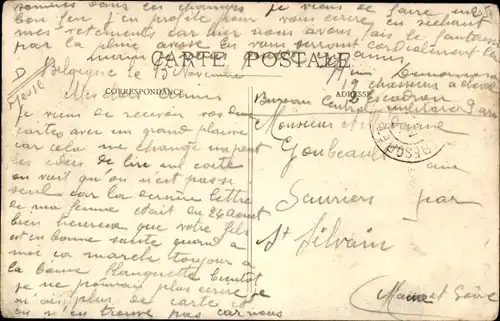 sommes dans les charges je viens de faire un
bon feu j'en profite pour vous écrire en séchant
mes vêtements car hier nous avons fait le fantassin
par la pluie vous serrant cordialement les
mains
CARTE POSTALE
Belgique le 13 Novembre
CORRESPONDANCE
Mes chers amis
je viens de recevoir vos deux
cartes avec un grand plaisir
car cela me change un peu
les idées de lire un carte
on voit qu'on n'est pas
seul car la dernière lettre
de ma femme était du 24 aout
bien heureux que votre fils
est en bonne santé quand a
moi ca marche toujour a
la bonne flanquette bientot
je ne pouvais plus ecrire je
n'ais plus de carte et
on n'en trouve pas car nous
ADRESSE
19 chasseurs a cheval
2 escadron
Bureau Central militaire Paris
Monsieur Madame
Goubeault
aux
Sauriers par
St Silvain
Maine et Loire